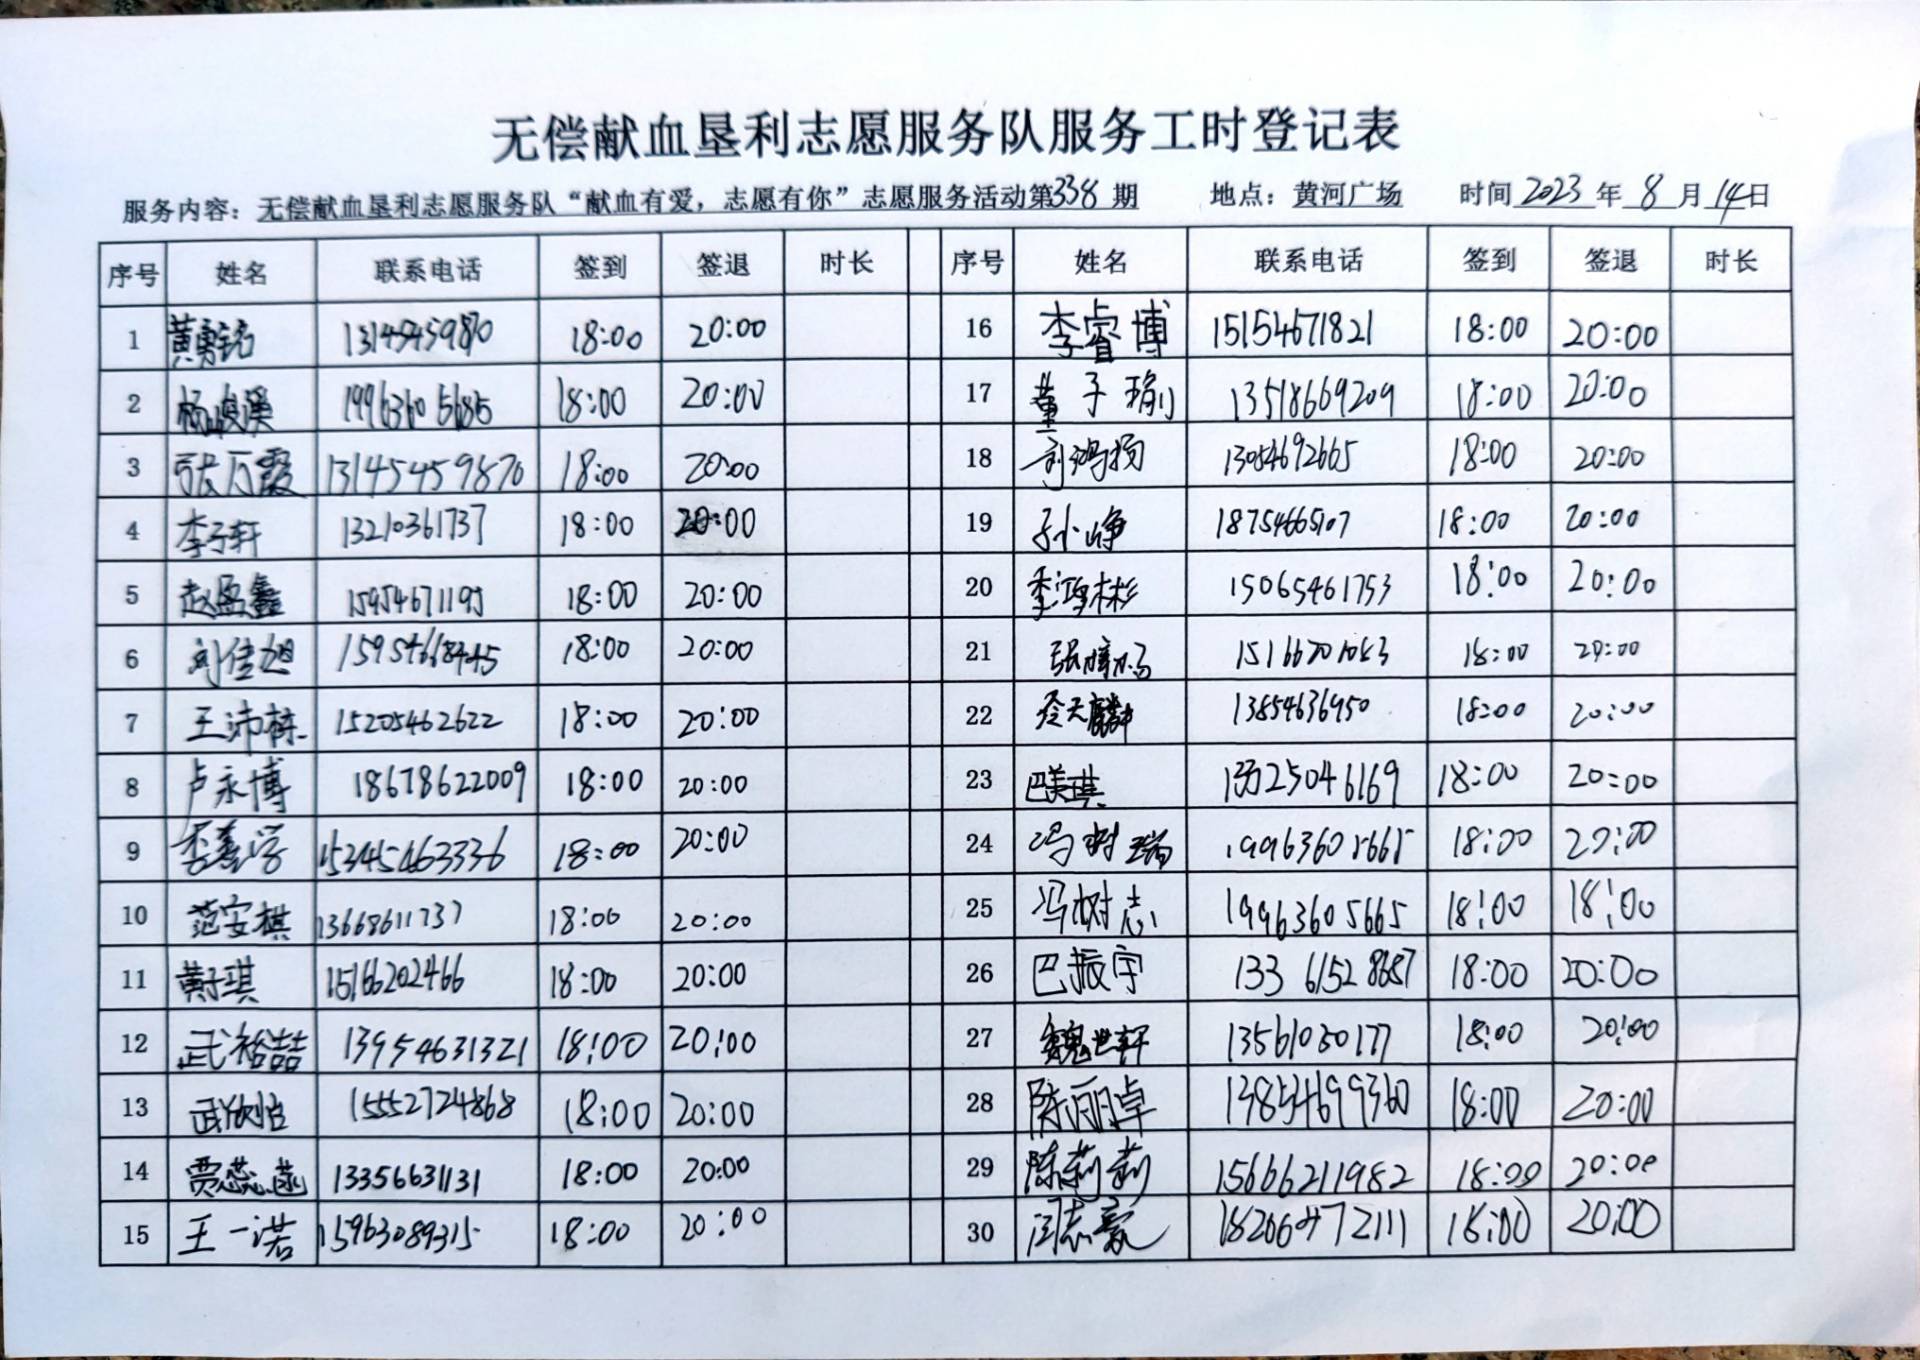 无偿献血垦利志愿服务队服务工时登记表
服务内容：无偿献血垦利志愿服务队“献血有爱，志愿有你”志愿服务活动第338期 地点：黄河广场 时间 2023 年 8 月 14 日
序号 姓名 联系电话 签到 签退 时长 序号 姓名 联系电话 签到 签退 时长
1 黄勇铭 13145459870 18:00 20:00 16 李睿博 15154671821 18:00 20:00
2 19963605685 18:00 20:00 17 董子瑜 13518669209 18:00 20:00
3 张万霞 13145459870 18:00 20:00 18 刘鸿扬 13054692665 18:00 20:00
4 李子轩 13210361737 18:00 20:00 19 孙峥 18754665107 18:00 20:00
5 赵盈鑫 15954671195 18:00 20:00 20 李鸿彬 15065461753 18:00 20:00
6 刘佳旭 15954668445 18:00 20:00 21 18:00 20:00
7 王沛栋 15205462622 18:00 20:00 22 13854636950 18:00 20:00
8 卢永博 18678622009 18:00 20:00 23 巴美琪 18:00 20:00
9 李 15345463336 18:00 20:00 24 冯树瑞 19963605665 18:00 20:00
10 范安棋 13668611737 18:00 20:00 25 冯树志 19963605665 18:00 18:00
11 黄子琪 15166202466 18:00 20:00 26 巴振宇 133 6152 8687 18:00 20:00
12 武裕喆 13954631321 18:00 20:00 27 魏世轩 13561030177 18:00 20:00
13 15552724868 18:00 20:00 28 陈丽卓 13854699360 18:00 20:00
14 贾蕊菡 13356631131 18:00 20:00 29 陈莉莉 15666211982 18:00 20:00
15 王一诺 15963089315 18:00 20:00 30 闫志豪 18206472111 18:00 20:00